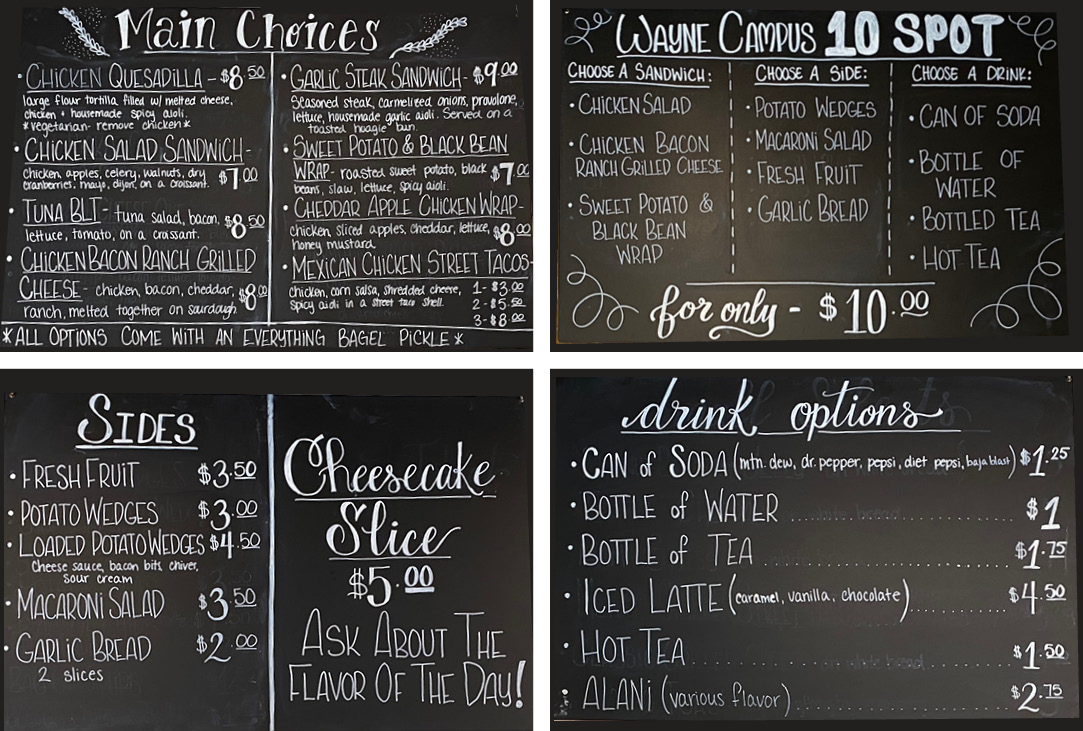 Main Choices
• CHICKEN QUESADILLA - $8.50
large flour tortilla filled w/ melted cheese,
chicken + housemade spicy aioli.
*vegetarian- remove chicken*
• CHICKEN SALAD SANDWICH -
chicken, apples, celery, walnuts, dry
cranberries, mayo, dijon, on a croissant. $7.00
• TUNA BLT - tuna salad, bacon,
lettuce, tomato, on a croissant. $8.50
• CHICKEN BACON RANCH GRILLED
CHEESE - chicken, bacon, cheddar,
ranch, melted together on sourdough. $8.00
• GARLIC STEAK SANDWICH - $9.00
Seasoned steak, carmelized onions, provolone,
lettuce, housemade garlic aioli. Served on a
toasted hoagie bun.
• SWEET POTATO & BLACK BEAN
WRAP - roasted sweet potato, black
beans, slaw, lettuce, spicy aioli. $7.00
• CHEDDAR APPLE CHICKEN WRAP -
chicken, sliced apples, cheddar, lettuce,
honey mustard. $8.00
• MEXICAN CHICKEN STREET TACOS -
chicken, corn salsa, shredded cheese, 1- $3.00
spicy aioli in a street taco shell. 2- $5.50
3- $8.00
*ALL OPTIONS COME WITH AN EVERYTHING BAGEL PICKLE*
WAYNE CAMPUS 10 SPOT
CHOOSE A SANDWICH:
• CHICKEN SALAD
• CHICKEN BACON
RANCH GRILLED CHEESE
• SWEET POTATO &
BLACK BEAN
WRAP
CHOOSE A SIDE:
• POTATO WEDGES
• MACARONI SALAD
• FRESH FRUIT
• GARLIC BREAD
CHOOSE A DRINK:
• CAN OF SODA
• BOTTLE OF
WATER
• BOTTLED TEA
• HOT TEA
for only - $10.00
SIDES
• FRESH FRUIT $3.50
• POTATO WEDGES $3.00
• LOADED POTATO WEDGES $4.50
Cheese sauce, bacon bits, chiver,
sour cream
• MACARONI SALAD $3.50
• GARLIC BREAD $2.00
2 slices
Cheesecake
Slice
$5.00
ASK ABOUT THE
FLAVOR OF THE DAY!
drink options
• CAN of SODA (mtn. dew, dr. pepper, pepsi, diet pepsi, baja blast) $1.25
• BOTTLE of WATER $1
• BOTTLE of TEA $1.75
• ICED LATTE (caramel, vanilla, chocolate) $4.50
• HOT TEA $1.50
• ALANI (various flavor) $2.75